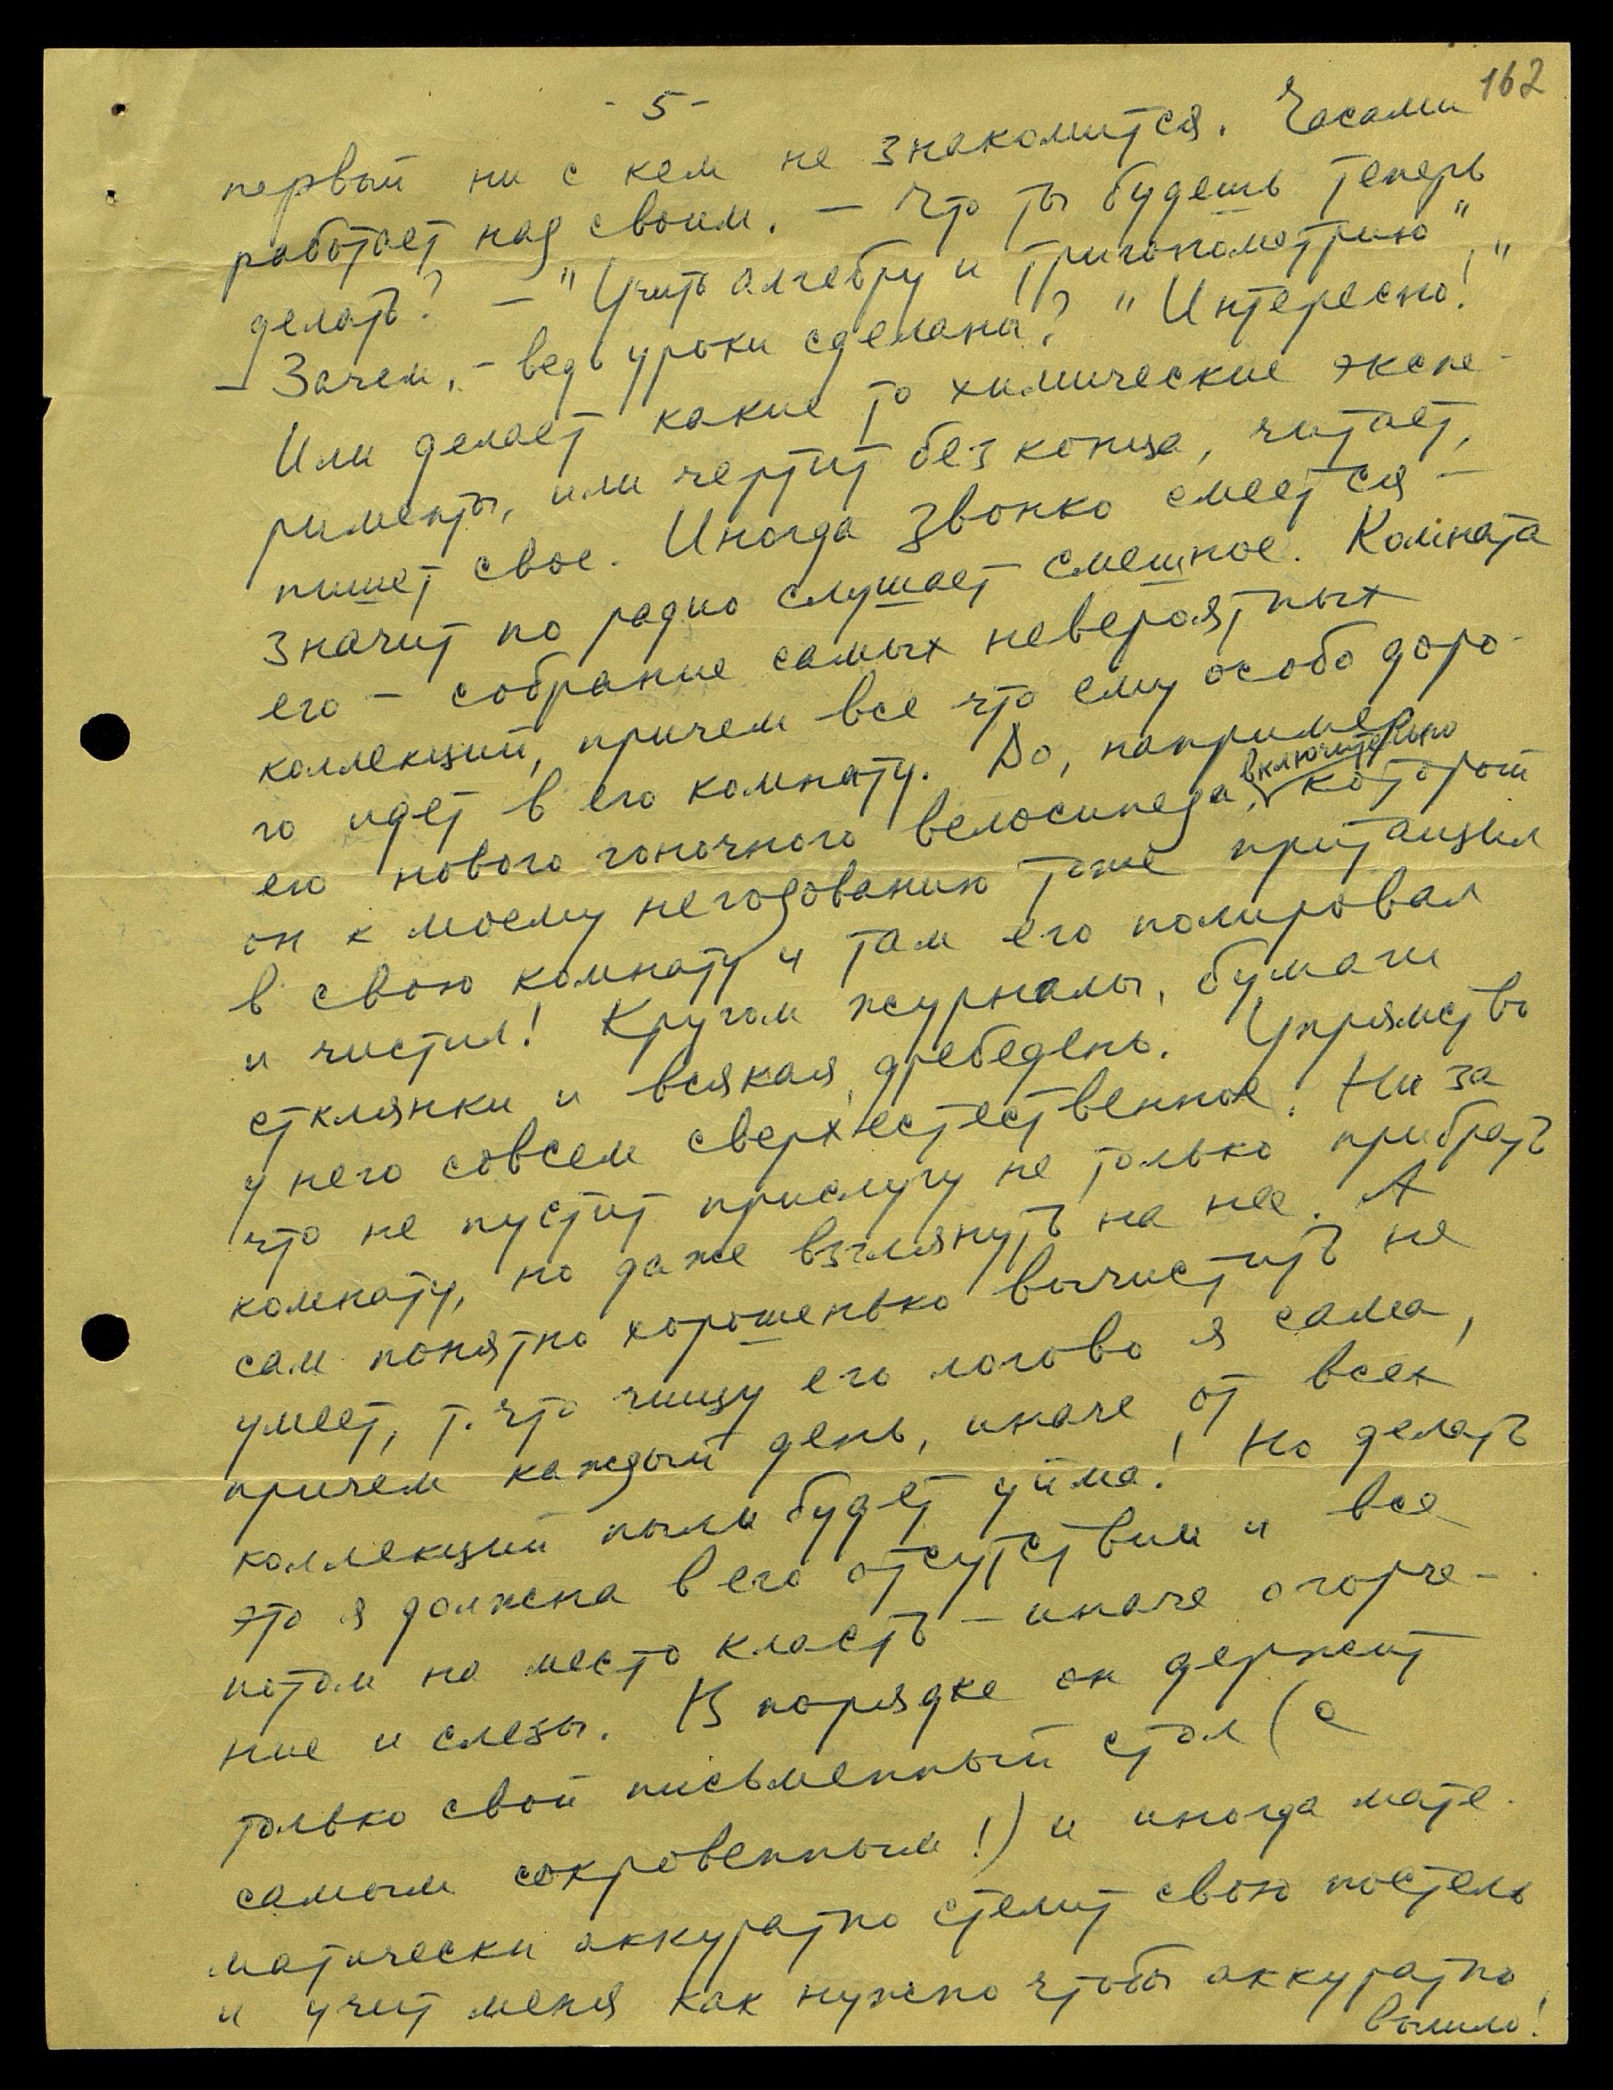 162
- 5 -
первый ни с кем не знакомится. Часами
работает над своим. — Что ты будешь теперь
делать? — "Учить алгебру и тригонометрию",
— Зачем, - ведь уроки сделаны? "Интересно!"
Или делает какие то химические экспе-
рименты, или чертит без конца, читает,
пишет свое. Иногда звонко смеется —
значит по радио слушает смешное. Комната
его — собрание самых невероятных
коллекций, причем все что ему особо доро-
го идет в его комнату. До, например
его нового гоночного велосипеда, включительно который
он к моему негодованию тоже притащил
в свою комнату и там его полировал
и чистил! Кругом журналы, бумаги
стклянки и всякая дребедень. Упрямство
у него совсем сверхъестественное. Ни за
что не пустит прислугу не только прибрать
комнату, но даже взглянуть на нее. А
сам понятно хорошенько вычистить не
умеет, т. что чищу его логово я сама,
причем каждый день, иначе от всех
коллекций пыли будет уйма! Но делать
это я должна в его отсутствии и все
потом на место класть — иначе огорче-
ние и слезы. В порядке он держит
только свой письменный стол (с
самым сокровенным!) и иногда мате-
матически аккуратно стелит свою постель
и учит меня как нужно чтобы аккуратно
вышло!